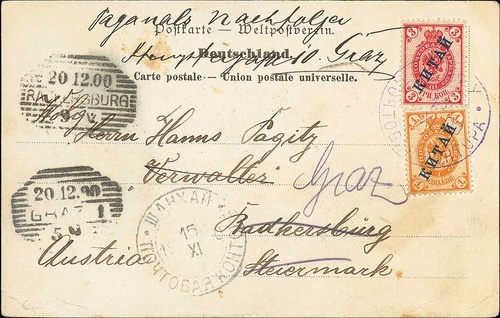 Paganals Nachfolger
Postkarte — Weltpostverein.
10. Graz
Deutschland.
Carte postale — Union postale universelle.
3 3
КИТАЙ
3 3
20 12.00
RADKERSBURG
Herrn Hanns Pagitz
КИТАЙ
Verwalter
Graz
20.12.00
GRAZ 1
ШАНХАЙ
15
XI
ПОЧТОВАЯ КОНТ
Radkersburg
Austria
Steiermark